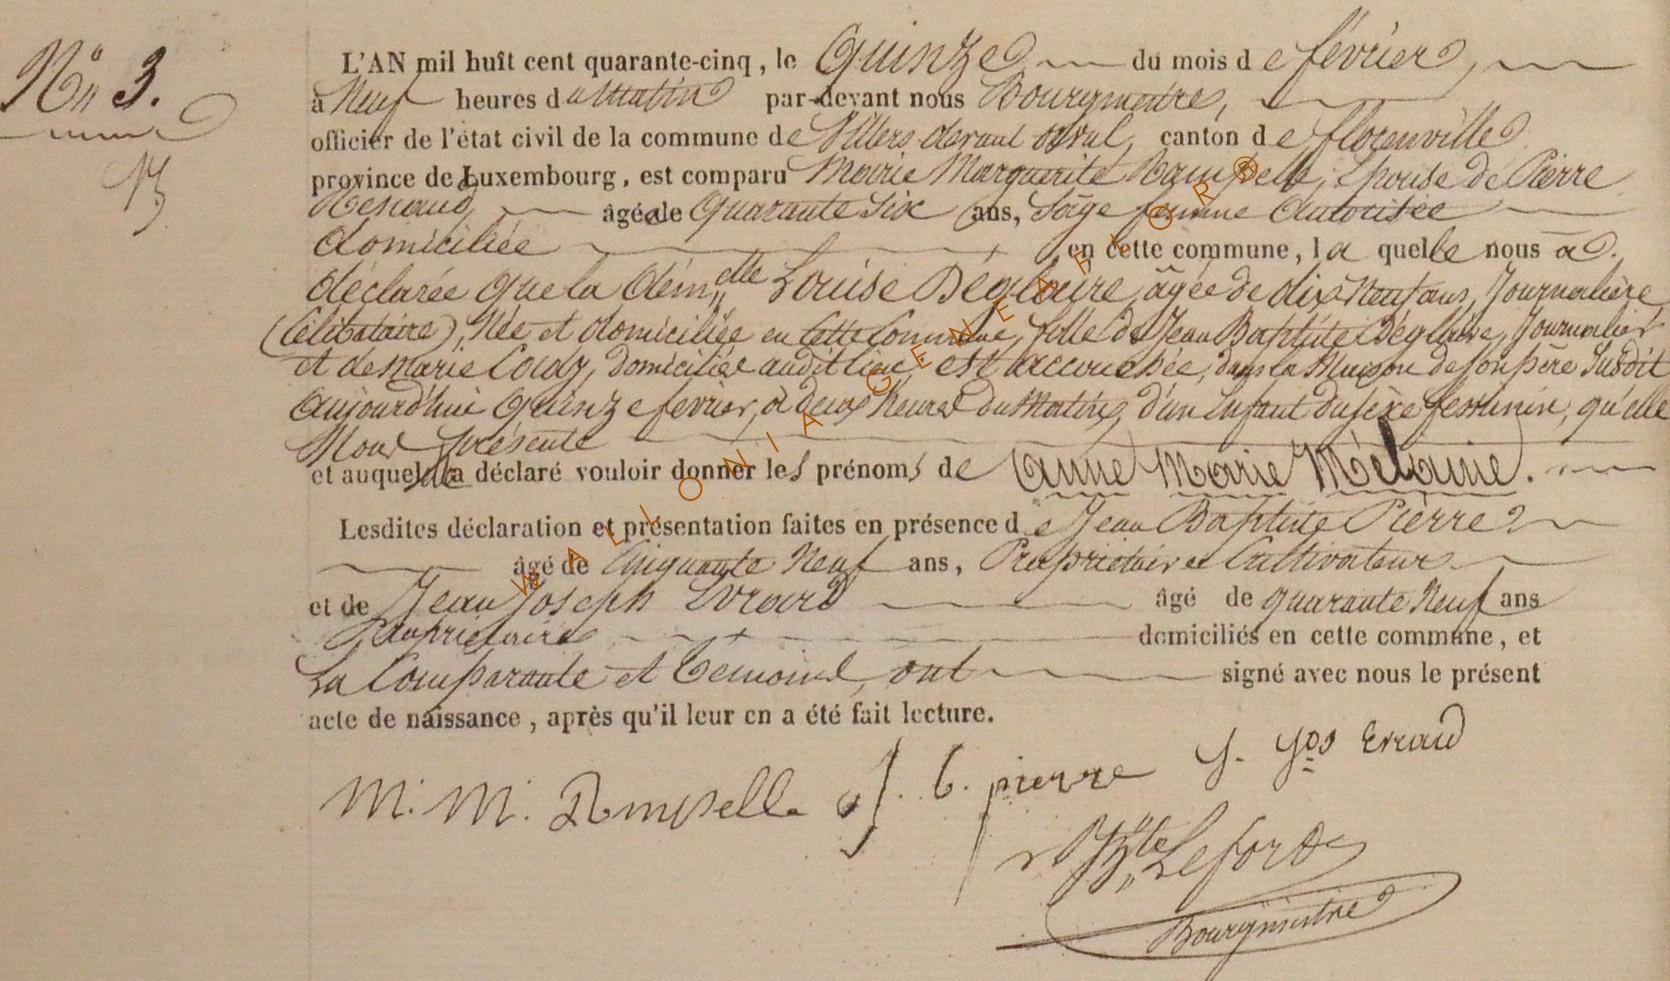 N° 3.
L'AN mil huit cent quarante-cinq, le Quinze du mois de février,
à Neuf heures du Matin par-devant nous Bourgmestre,
officier de l'état civil de la commune de Villers devant orval, canton de florenville
province de Luxembourg, est comparu Marie Marguerite Rampelle, Epouse de Pierre
Renaud, âgée de Quarante Six ans, Sage femme Autorisée
domiciliée en cette commune, la quelle nous a
déclarée que la dem.lle Louise Déglaire, âgée de dix Neuf ans, Journalière
(Célibataire), Née et domiciliée en cette Commune, fille de Jean Baptiste Déglaire, Journalier
et de marie domiciliée audit lieu, est accouchée, dans la Maison de son père Susdit
aujourd'hui Quinze février, à deux heures du Matin, d'un Enfant du sexe féminin, qu'elle
Nous présente
et auquel elle a déclaré vouloir donner les prénoms de Anne Marie Mélanie.
Lesdites déclaration et présentation faites en présence de Jean Baptiste Pierre
âgé de Cinquante Neuf ans, Propriétaire Cultivateur
et de Jean Joseph Evrard âgé de quarante Neuf ans
Propriétaire domiciliés en cette commune, et
La Comparante et témoins, ont signé avec nous le présent
acte de naissance, après qu'il leur en a été fait lecture.
M. M. Rampelle J. b. pierre J. Jos Evrard
Bte Lefort
Bourgmestre
WALLONIA GENEAFLOR®